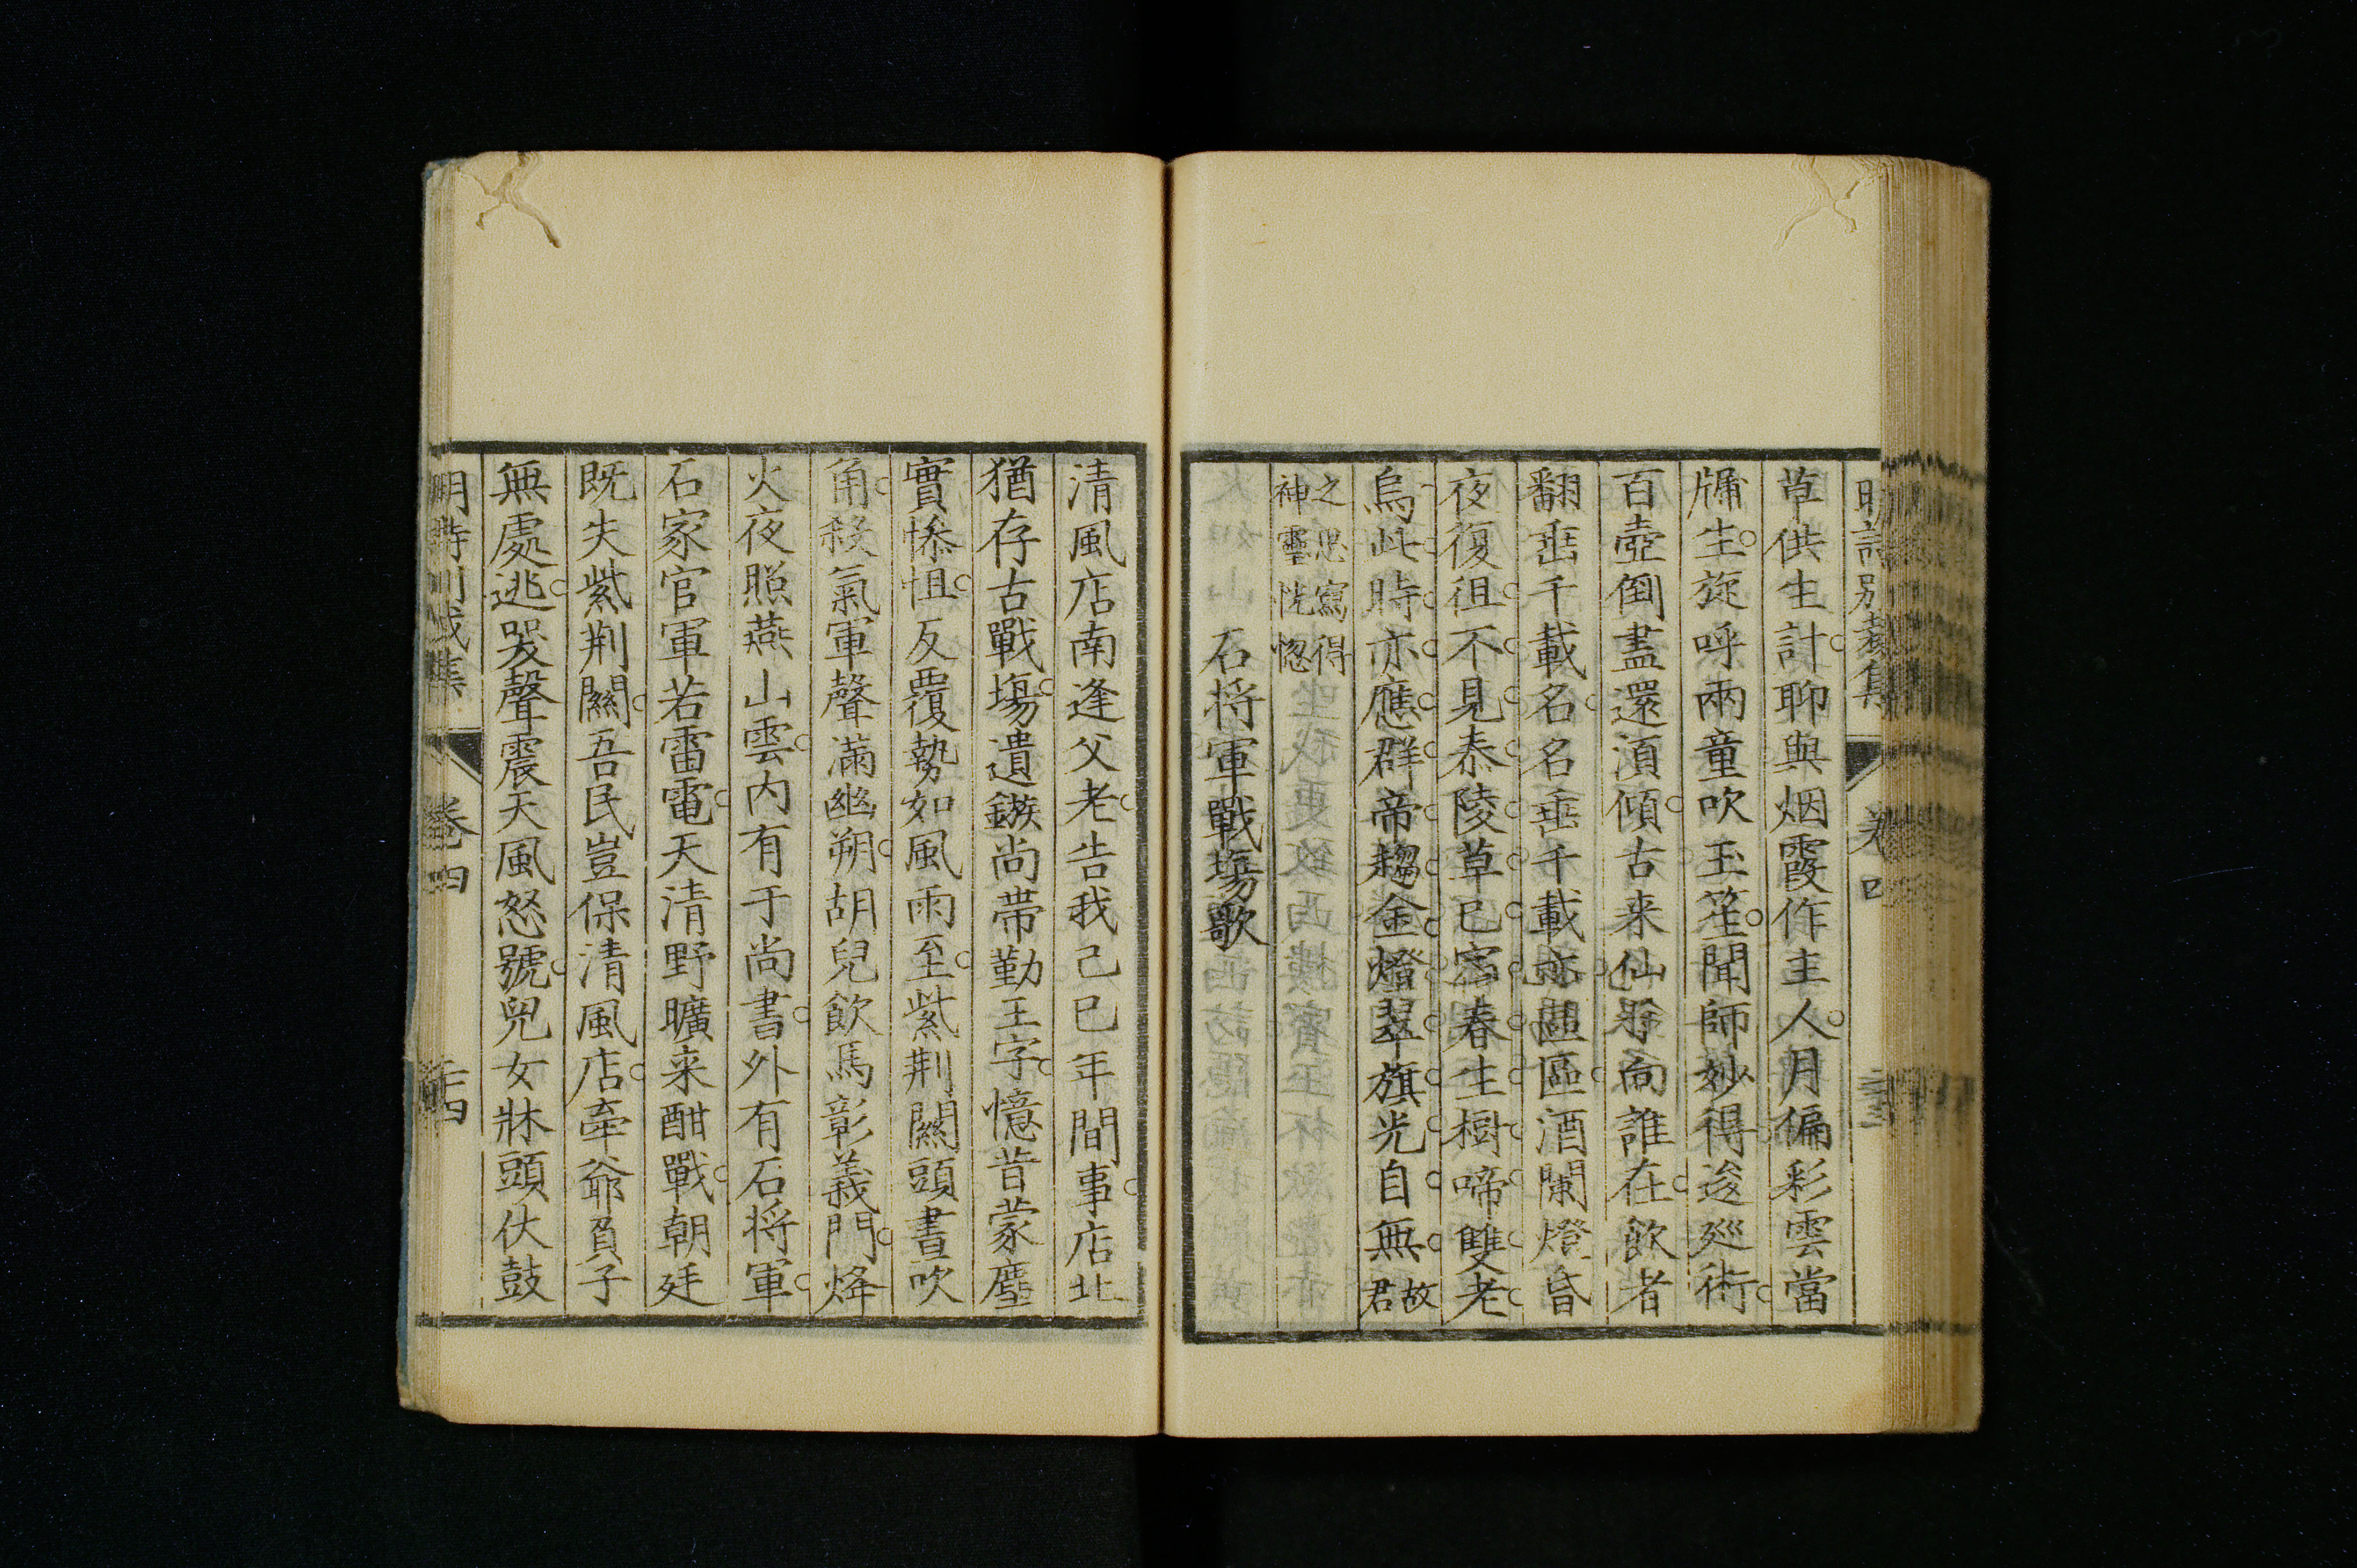 明詩別裁集 卷四
草供生計聊與烟霞作主人月偏彩雲當
牖生旋呼兩童吹玉笙聞師妙得逡廵術
百壺倒盡還湏傾古来仙界向誰在飲者
翻垂千載名名垂千載亦區區酒闌燈昏
夜復徂不見泰陵草已宿春生樹啼雙老
烏此時亦應群帝趨金燈翠旗光自無故君
之思寫得
神靈恍惚
石將軍戰塲歌
清風店南逢父老告我己巳年間事店北
猶存古戰塲遺鏃尚帶勤王字憶昔蒙塵
實慘怛反覆勢如風雨至紫荆關頭晝吹
角殺氣軍聲滿幽朔胡兒飲馬彰義門烽
火夜照燕山雲内有于尚書外有石将軍
石家官軍若雷電天清野曠来酣戰朝廷
既失紫荆關吾民豈保清風店牽爺負子
無處逃哭聲震天風怒號兒女牀頭伏鼓
明詩別裁集 卷四 二十四